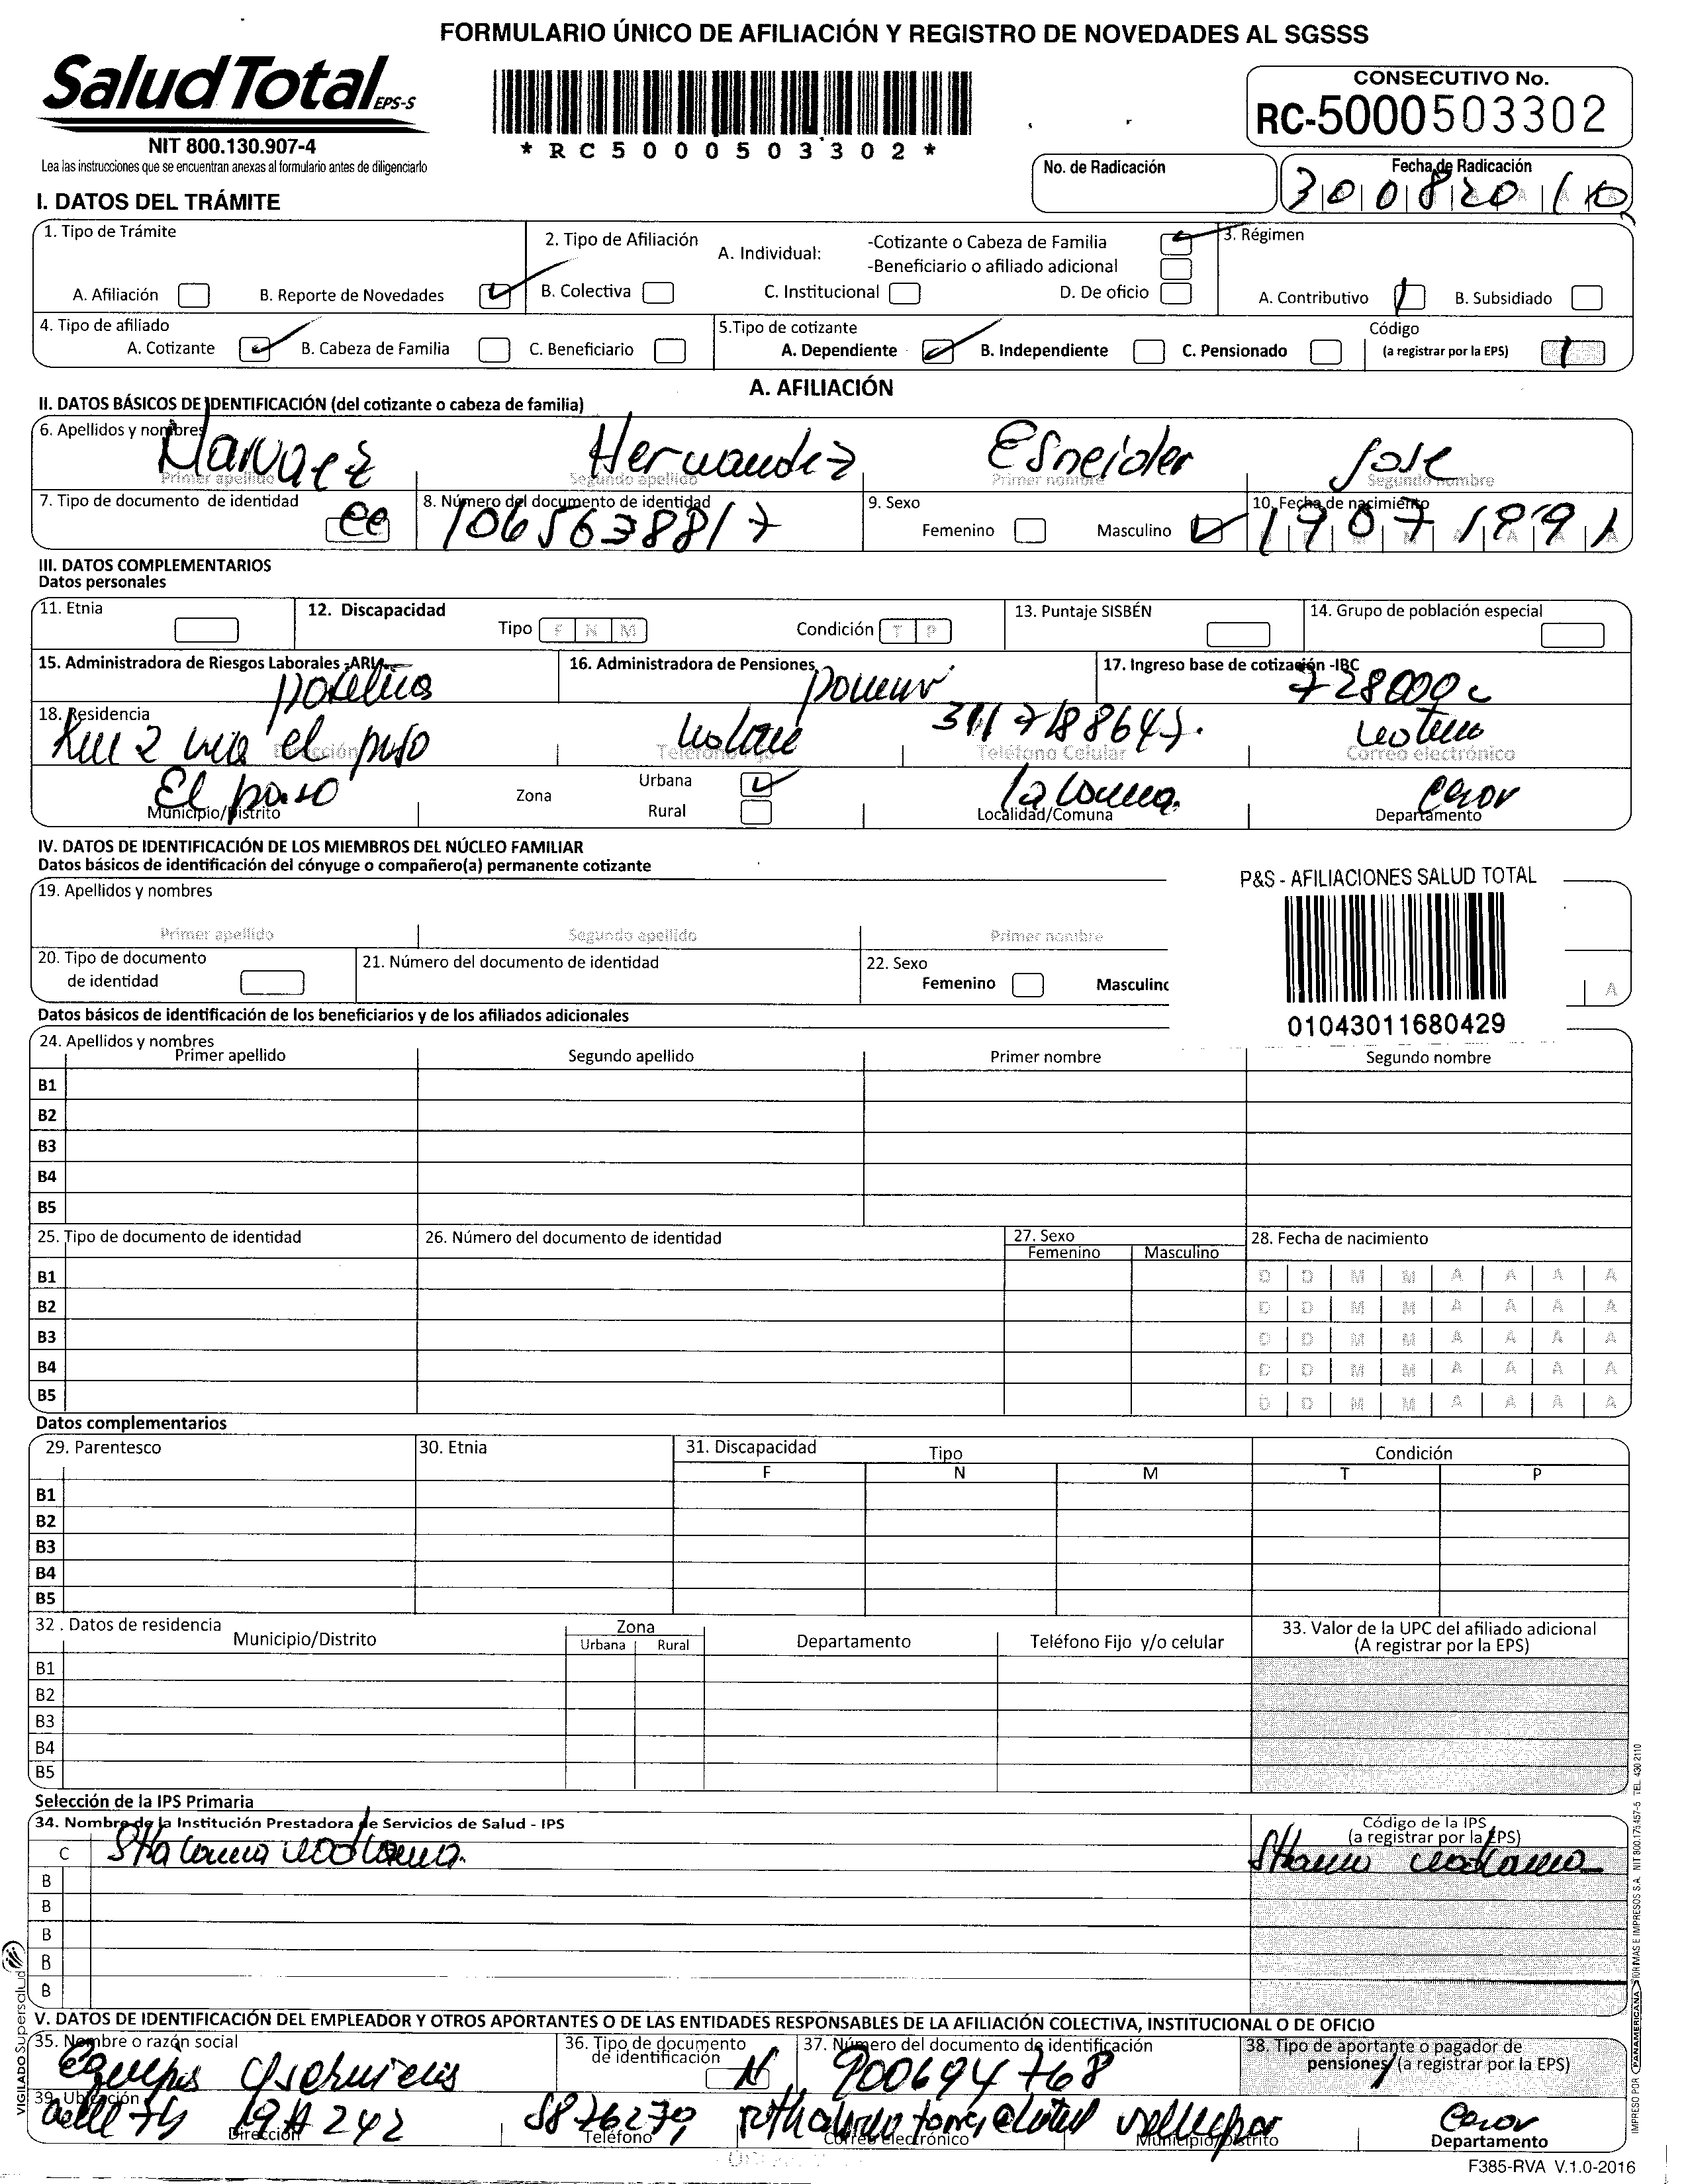 FORMULARIO ÚNICO DE AFILIACIÓN Y REGISTRO DE NOVEDADES AL SGSSS
SaludTotal EPS-S
NIT 800.130.907-4
Lea las instrucciones que se encuentran anexas al formulario antes de diligenciarlo
*RC5000503302*
CONSECUTIVO No.
RC-5000503302
No. de Radicación
Fecha de Radicación
I. DATOS DEL TRÁMITE
1. Tipo de Trámite
A. Afiliación B. Reporte de Novedades
2. Tipo de Afiliación A. Individual: -Cotizante o Cabeza de Familia
-Beneficiario o afiliado adicional
B. Colectiva C. Institucional D. De oficio
3. Régimen
A. Contributivo B. Subsidiado
4. Tipo de afiliado
A. Cotizante B. Cabeza de Familia C. Beneficiario
5.Tipo de cotizante
A. Dependiente B. Independiente C. Pensionado
Código
(a registrar por la EPS)
A. AFILIACIÓN
II. DATOS BÁSICOS DE IDENTIFICACIÓN (del cotizante o cabeza de familia)
6. Apellidos y nombres
Narvaez Hernandez Esneider Jose
Primer apellido Segundo apellido Primer nombre Segundo nombre
7. Tipo de documento de identidad
CC
8. Número del documento de identidad
1065638817
9. Sexo
Femenino Masculino
10. Fecha de nacimiento
19071991
III. DATOS COMPLEMENTARIOS
Datos personales
11. Etnia
12. Discapacidad
Tipo F N M Condición T P
13. Puntaje SISBÉN
14. Grupo de población especial
15. Administradora de Riesgos Laborales -ARL
16. Administradora de Pensiones
17. Ingreso base de cotización -IBC
18. Residencia
Km 2 via el paso
3117188647
Dirección Teléfono Fijo Teléfono Celular Correo electrónico
El paso
Municipio/Distrito
Zona Urbana
Rural
la Loma
Localidad/Comuna
Cesar
Departamento
IV. DATOS DE IDENTIFICACIÓN DE LOS MIEMBROS DEL NÚCLEO FAMILIAR
Datos básicos de identificación del cónyuge o compañero(a) permanente cotizante
P&S - AFILIACIONES SALUD TOTAL
01043011680429
19. Apellidos y nombres
Primer apellido Segundo apellido Primer nombre
20. Tipo de documento
de identidad
21. Número del documento de identidad
22. Sexo
Femenino Masculino
A
Datos básicos de identificación de los beneficiarios y de los afiliados adicionales
24. Apellidos y nombres
Primer apellido Segundo apellido Primer nombre Segundo nombre
B1
B2
B3
B4
B5
25. Tipo de documento de identidad 26. Número del documento de identidad 27. Sexo 28. Fecha de nacimiento
Femenino Masculino
B1 D D M M A A A A
B2 D D M M A A A A
B3 D D M M A A A A
B4 D D M M A A A A
B5 D D M M A A A A
Datos complementarios
29. Parentesco 30. Etnia 31. Discapacidad Tipo Condición
F N M T P
B1
B2
B3
B4
B5
32 . Datos de residencia
Municipio/Distrito Zona Departamento Teléfono Fijo y/o celular
Urbana Rural
33. Valor de la UPC del afiliado adicional
(A registrar por la EPS)
B1
B2
B3
B4
B5
Selección de la IPS Primaria
34. Nombre de la Institución Prestadora de Servicios de Salud - IPS
Código de la IPS
(a registrar por la EPS)
C
B
B
B
B
B
V. DATOS DE IDENTIFICACIÓN DEL EMPLEADOR Y OTROS APORTANTES O DE LAS ENTIDADES RESPONSABLES DE LA AFILIACIÓN COLECTIVA, INSTITUCIONAL O DE OFICIO
35. Nombre o razón social
36. Tipo de documento
de identificación
N
37. Número del documento de identificación
900694768
38. Tipo de aportante o pagador de
pensiones (a registrar por la EPS)
39. Ubicación
5876279
Cesar
Dirección Teléfono Correo electrónico Municipio/Distrito Departamento
F385-RVA V.1.0-2016
VIGILADO Supersalud
IMPRESO POR PANAMERICANA FORMAS E IMPRESOS S.A. NIT 800.175.457-5 TEL. 430 2110